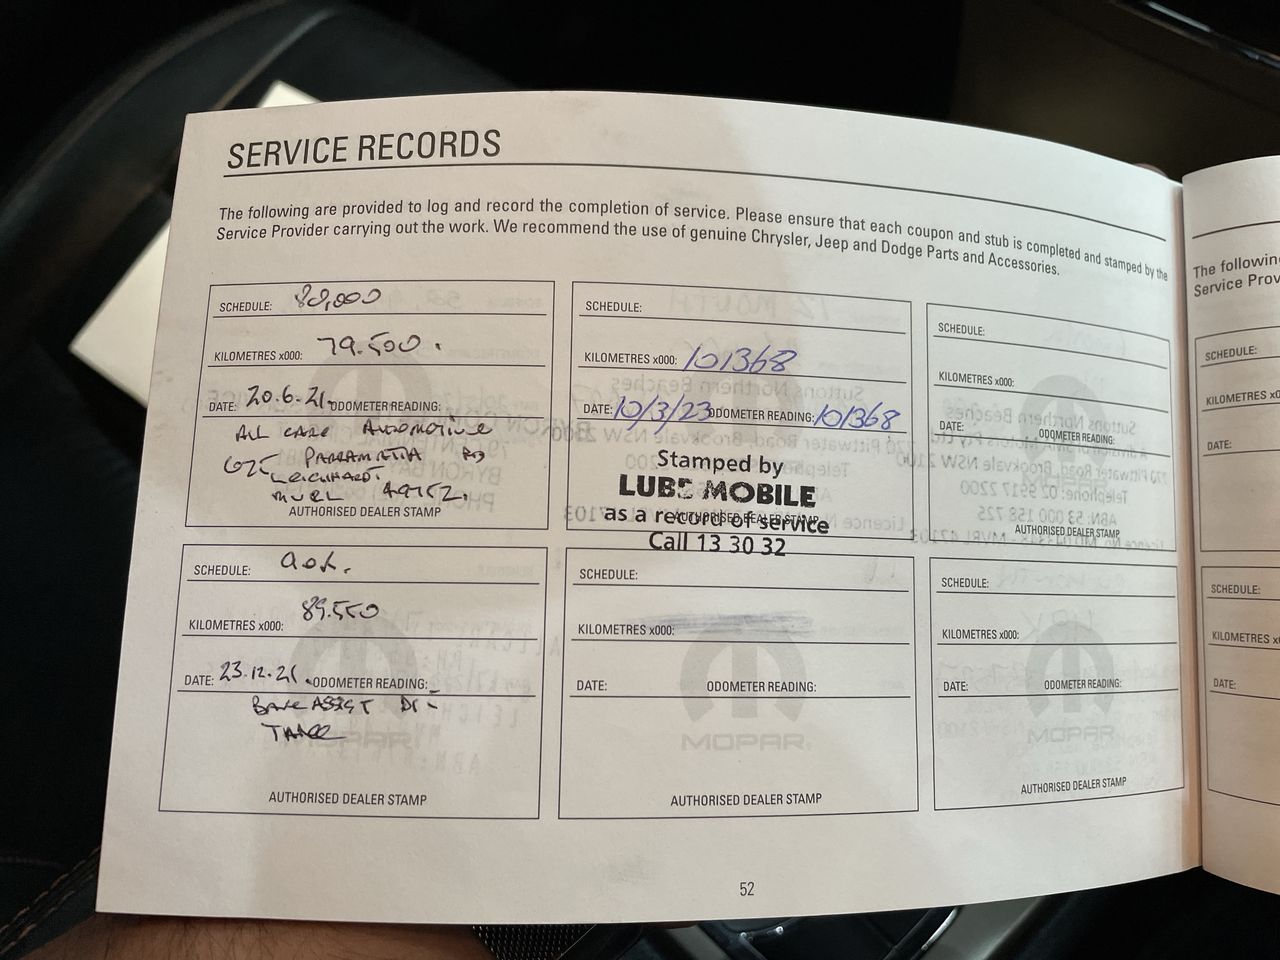 SERVICE RECORDS
The following are provided to log and record the completion of service. Please ensure that each coupon and stub is completed and stamped by the
Service Provider carrying out the work. We recommend the use of genuine Chrysler, Jeep and Dodge Parts and Accessories.
SCHEDULE: 80,000
KILOMETRES x000: 79.500.
DATE: 20.6.21. ODOMETER READING:
ALL CARE AUTOMOTIVE
PARRAMATTA RD
LEICHHARDT.
AUTHORISED DEALER STAMP
SCHEDULE:
KILOMETRES x000: 101368
DATE: 10/3/23 ODOMETER READING: 101368
Stamped by
LUBE MOBILE
as a record of service
AUTHORISED DEALER STAMP
Call 13 30 32
SCHEDULE:
KILOMETRES x000:
DATE: ODOMETER READING:
AUTHORISED DEALER STAMP
SCHEDULE: 90k.
KILOMETRES x000: 89.550
DATE: 23.12.21. ODOMETER READING:
MOPAR
AUTHORISED DEALER STAMP
SCHEDULE:
KILOMETRES x000:
DATE: ODOMETER READING:
MOPAR
AUTHORISED DEALER STAMP
SCHEDULE:
KILOMETRES x000:
DATE: ODOMETER READING:
MOPAR
AUTHORISED DEALER STAMP
52
The following
Service Prov
SCHEDULE:
KILOMETRES x0
DATE:
SCHEDULE:
KILOMETRES x0
DATE: